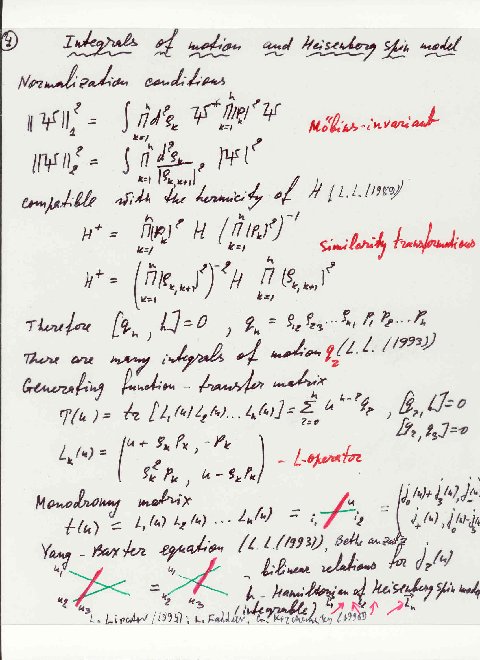 4 Integrals of motion and Heisenberg spin model
Normalization conditions
||Ψ||²₁ = ∫ ∏ₖ₌₁ⁿ d²ρₖ Ψ⁺ ∏ₖ₌₁ⁿ |pₖ|² Ψ
Möbius-invariant
||Ψ||²₂ = ∫ ∏ₖ₌₁ⁿ d²ρₖ / |ρₖ,ₖ₊₁|² |Ψ|²
compatible with the hermicity of H (L.L.
H⁺ = ∏ₖ₌₁ⁿ |pₖ|² H (∏ₖ₌₁ⁿ |pₖ|²)⁻¹
Similarity transformations
H⁺ = (∏ₖ₌₁ⁿ |ρₖ,ₖ₊₁|²)⁻² H ∏ₖ₌₁ⁿ |ρₖ,ₖ₊₁|²
Therefore [qₙ, h] = 0 , qₙ = ρ₁₂ ρ₂₃ … ρₙ₁ p₁ p₂ … pₙ
There are many integrals of motion (L.L. (1993))
Generating function - transfer matrix
T(u) = tr [L₁(u) L₂(u) … Lₙ(u)] = , [q₂, h] = 0
[q₂, q₃] = 0
Lₖ(u) = (u + ρₖ pₖ , - pₖ
ρₖ² pₖ , u - ρₖ pₖ) - L-operator
Monodromy matrix
t(u) = L₁(u) L₂(u) … Lₙ(u) = =
Yang - Baxter equation (L.L. (1993)), Bethe
- bilinear relations for
h - Hamiltonian of Heisenberg spin model
(integrable)
L. Lipatov (1993); L. Faddeev, G. Korchemsky